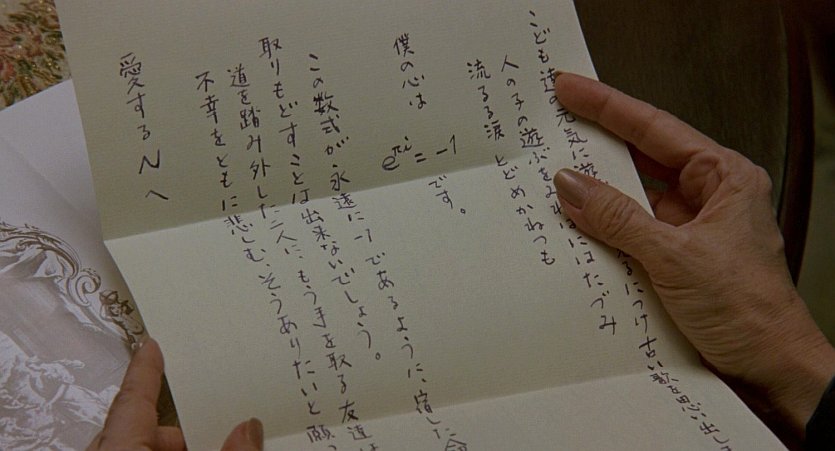 こども達の元気に遊 るにつけ古い歌を思い出し
人の子の遊ぶをみればにはたづみ
流るる涙 とどめかねつも
僕の心は e^{πi} = -1 です。
この数式が永遠に-1であるように、宿した命
取りもどすことは出来ないでしょう。
道を踏み外した二人に、もう手を取る友達は
不幸をともに悲しむ、そうありたいと願
愛するNへ